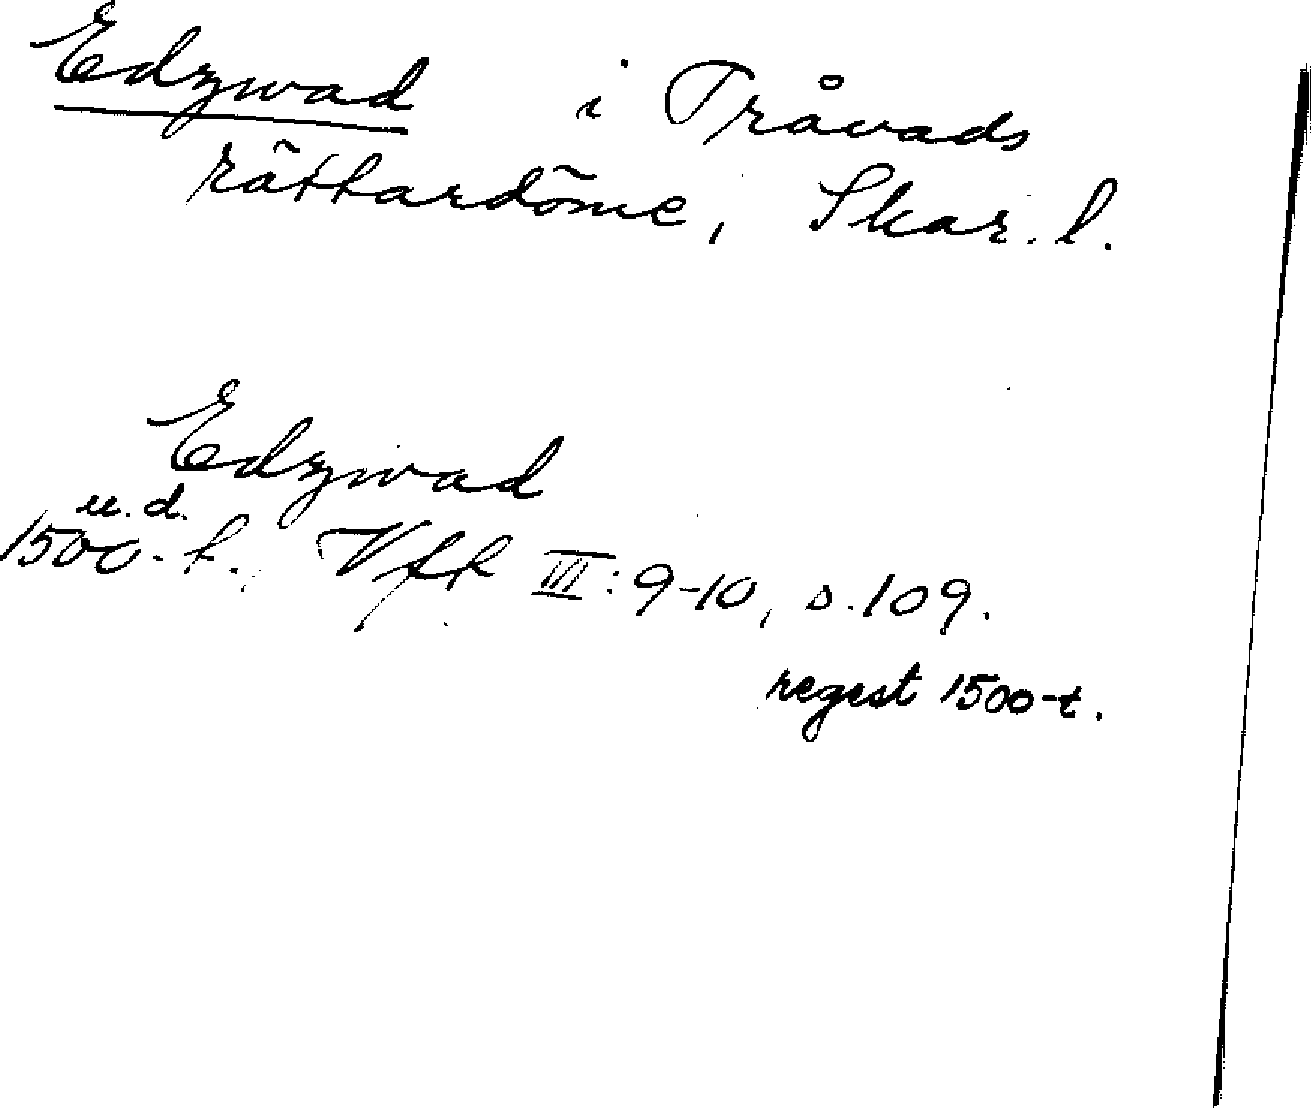 Edzwad i Tråvads
rättardöme, Skar. l.
Edzwad
u.d.
1500-t. Vft III: 9-10, s. 109.
regest 1500-t.